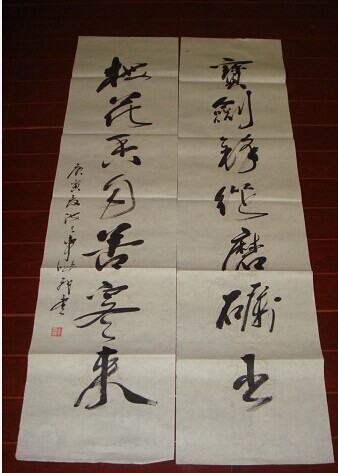 寶劍鋒從磨礪出
梅花香自苦寒来
庚寅夏